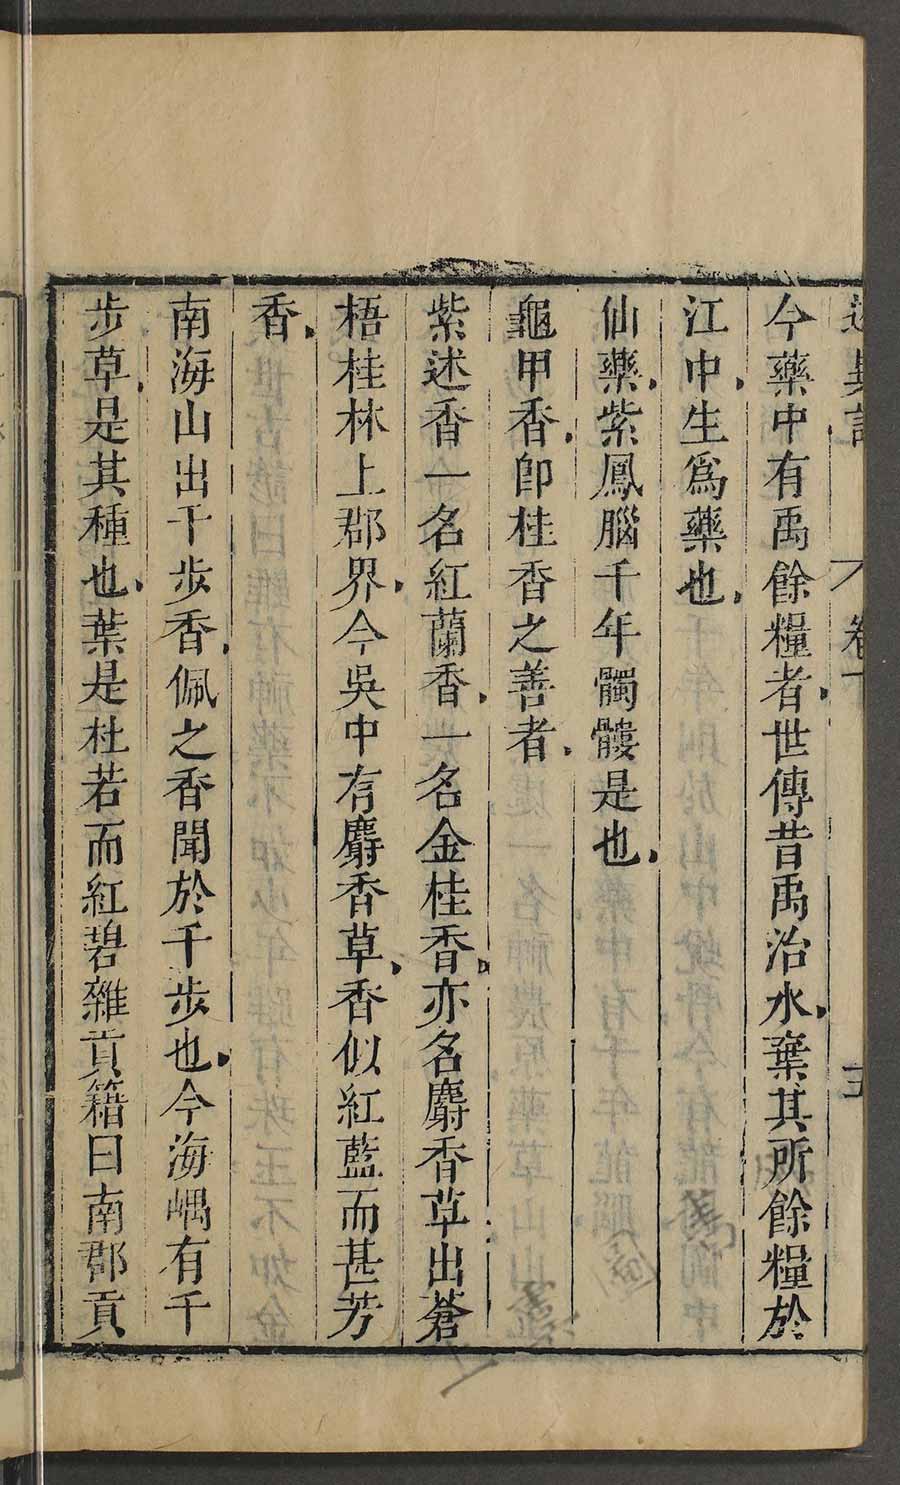 述異記 卷下 五
今藥中有禹餘糧者世傳昔禹治水棄其所餘糧於
江中生爲藥也
仙藥紫鳳腦千年髑髏是也
龜甲香卽桂香之善者
紫述香一名紅蘭香一名金桂香亦名麝香草出蒼
梧桂林上郡界今吳中有麝香草香似紅藍而甚芳
香
南海山出千步香佩之香聞於千步也今海嵎有千
步草是其種也葉是杜若而紅碧雜貢籍曰南郡貢